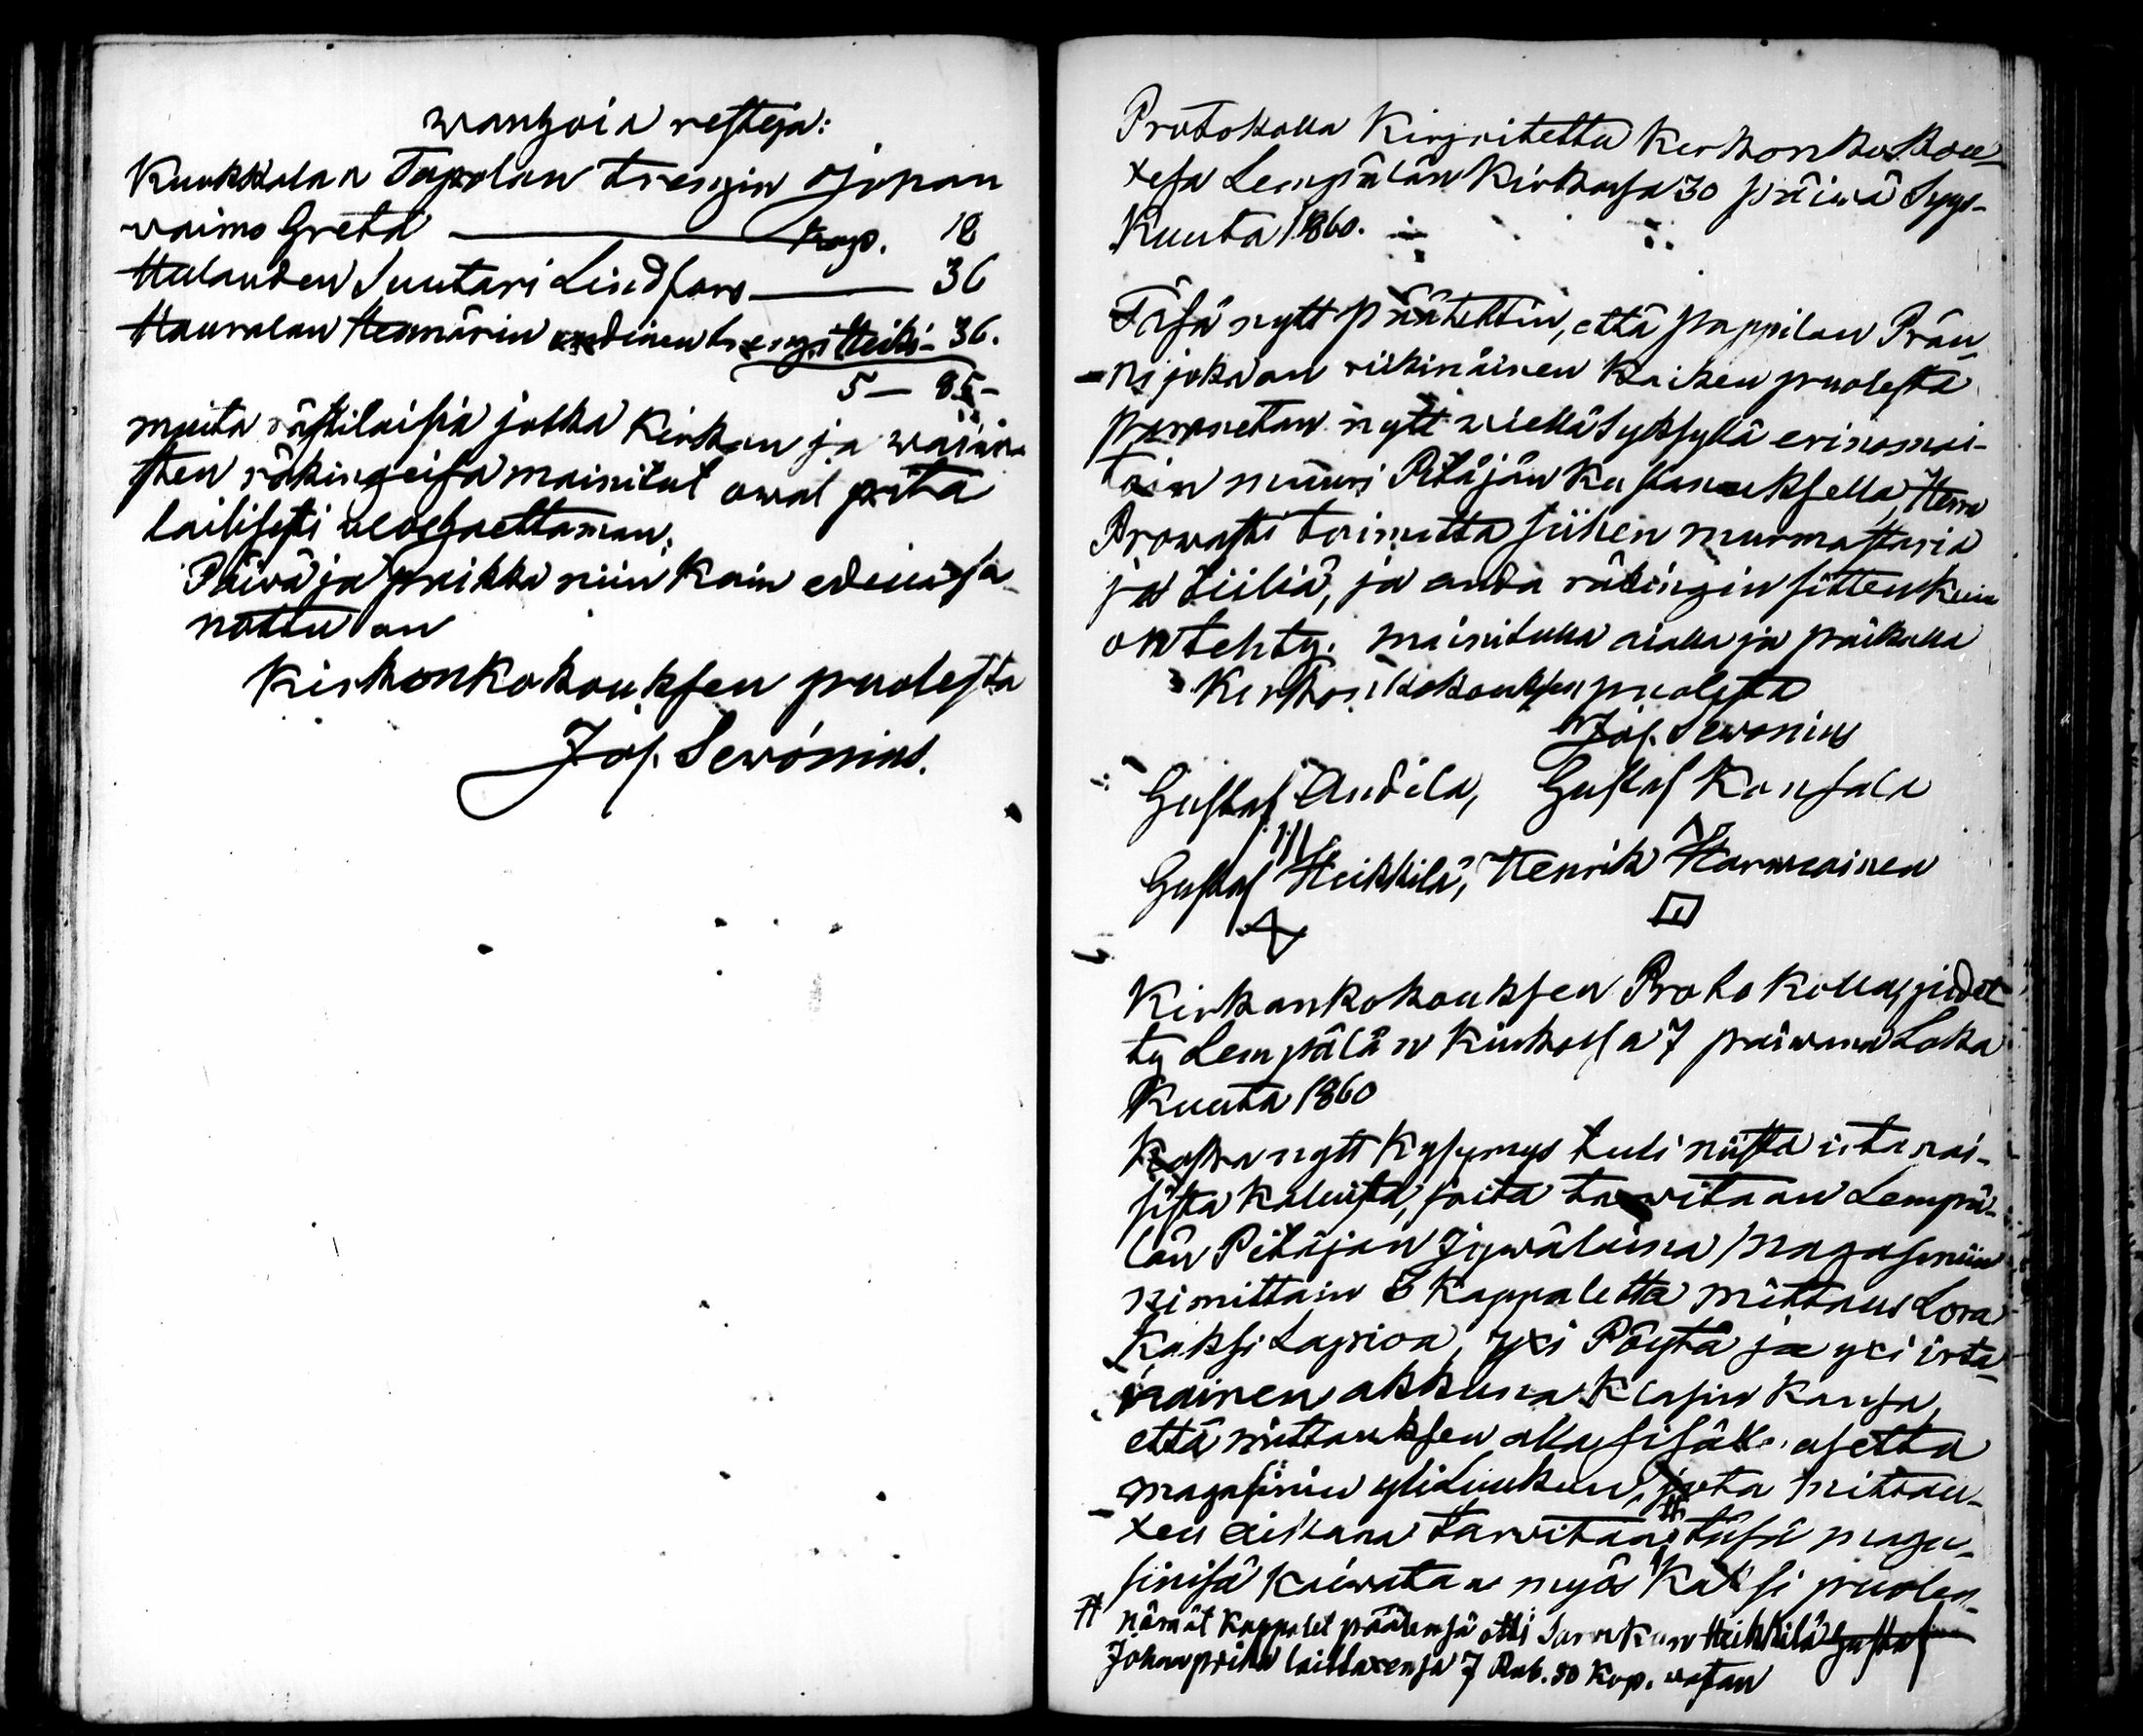 wanhoia restejä:
Kuokkalan Tapolan trengin Johan
waimo Greta — Kop. 18
Hulauden Suutari Lindfors — 36
Hauralan Heinärin endinen trengi Heiki - 36.
5 — 85 -
muita rästiläisiä jotka Kirkon ja waiwa
sten räkingeisä mainitut owat pitä
laillisesti uloshaettaman.
Päiwä ja paikka niin Kuin edellä sa-
nottu on
Kirkonkokouksen puolesta
Jos. Sewónius.
Protokolla Kirjoitettu Kirkonkokou-
xesa Lempälän Kirkosa 30 päiwä Syys-
Kuuta 1860.
Täsä nytt päätettin, että pappilan Prän-
ni joka on rikinäinen Kaiken puolesta
parannetan nytt wiellä Syksyllä erinomai-
tain muuri Pitäjän Kustannuksella, Herra
Prowasti toimitta siihen muurmästaria
ja tiiliä, ja anda räkingin sitten Kuin
on tehty. mainitulla aialla ja paikalla
Kirkon Kokouksen puolesta
Jos. Sewonius
Gustaf Andila, Gustaf Konsala
Gustaf Heikkilä, Henrik Harwiainen
Kirkonkokouksen Protokolla, pidet
ty Lempälän Kirkossa 7 päiwänä Loka
Kuuta 1860
Koska nytt Kysymys tuli niistä irtanai-
sista Kaluista, joita tarwitaan Lempä-
län Pitäjän Jywälaina / magasiniin
nimittäin 6 Kappaletta mittaus Lora
Kaksi Lapiota, yxi Pöytä ja yxi irta-
nainen akkuna Klasin Kansa,
että mittauksen alla sisälle asetta
magasinin yliluukun, jota mittau-
xen aikana tarwitaan # täsä maga-
sinisa Kaiwataan myös Kaksi puolen-
# nämät Kappalet päällensä otti Sarrakan Heikkilä Gustaf
Johanpoika laittaxensa 7 Rub. 80 Kop. wastan